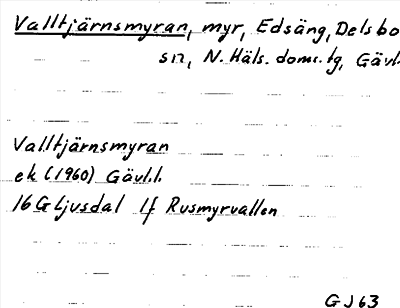 Valltjärnsmyran, myr, Edsäng, Delsbo
sn, N. Häls. doms. tg, Gävl.
Valltjärnsmyran
ek (1960) Gävl.l.
16G Ljusdal 1f Rusmyrvallen
GJ63